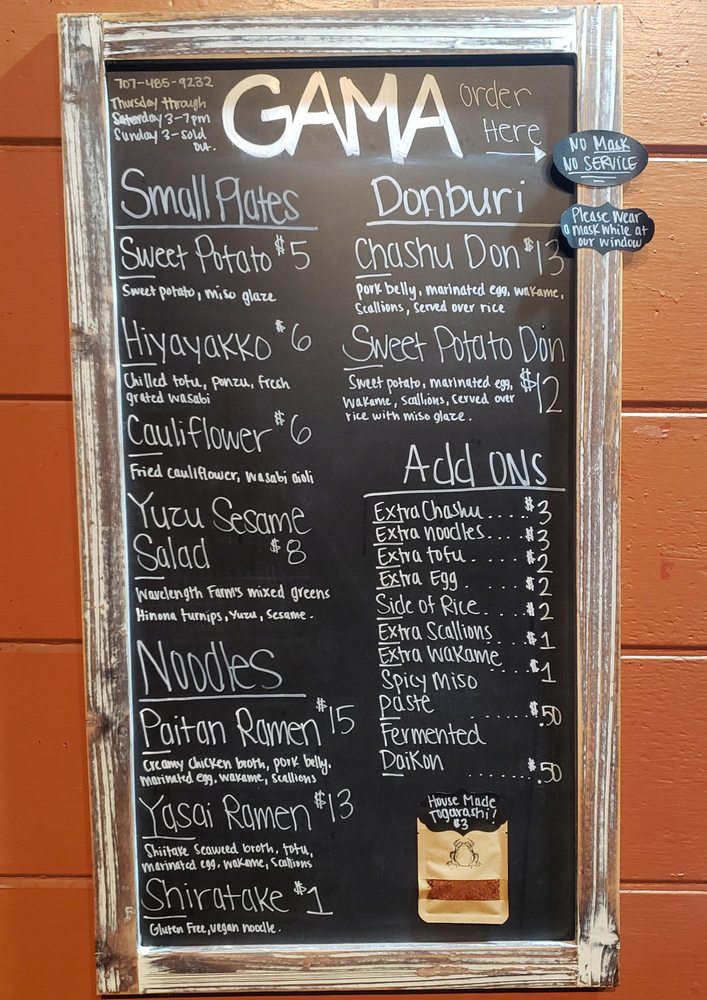 707-485-9232
Thursday through
Saturday 3-7pm
Sunday 3-sold
out.
GAMA
order
Here
NO Mask
NO SERVICE
Please Wear
a mask while at
our window
Small Plates
Sweet Potato $5
Sweet potato, miso glaze
Hiyayakko $6
Chilled tofu, ponzu, fresh
grated wasabi
Cauliflower $6
Fried cauliflower, wasabi aioli
Yuzu Sesame
Salad $8
Wavelength Farm's mixed greens
Hinona turnips, yuzu, sesame.
Noodles
Paitan Ramen $15
Creamy chicken broth, pork belly,
marinated egg, wakame, scallions
Yasai Ramen $13
Shiitake seaweed broth, tofu,
marinated egg, wakame, scallions
Shiratake $1
Gluten Free, vegan noodle.
Donburi
Chashu Don $13
pork belly, marinated egg, wakame,
scallions, served over rice
Sweet Potato Don
$12
Sweet potato, marinated egg,
wakame, scallions, served over
rice with miso glaze.
Add ONS
Extra Chashu.....$3
Extra noodles....$3
Extra tofu.....$2
Extra Egg.....$2
Side of Rice....$2
Extra Scallions...$1
Extra Wakame...$1
Spicy Miso
paste.......$.50
Fermented
Daikon.......$.50
House Made
Togarashi!
$3